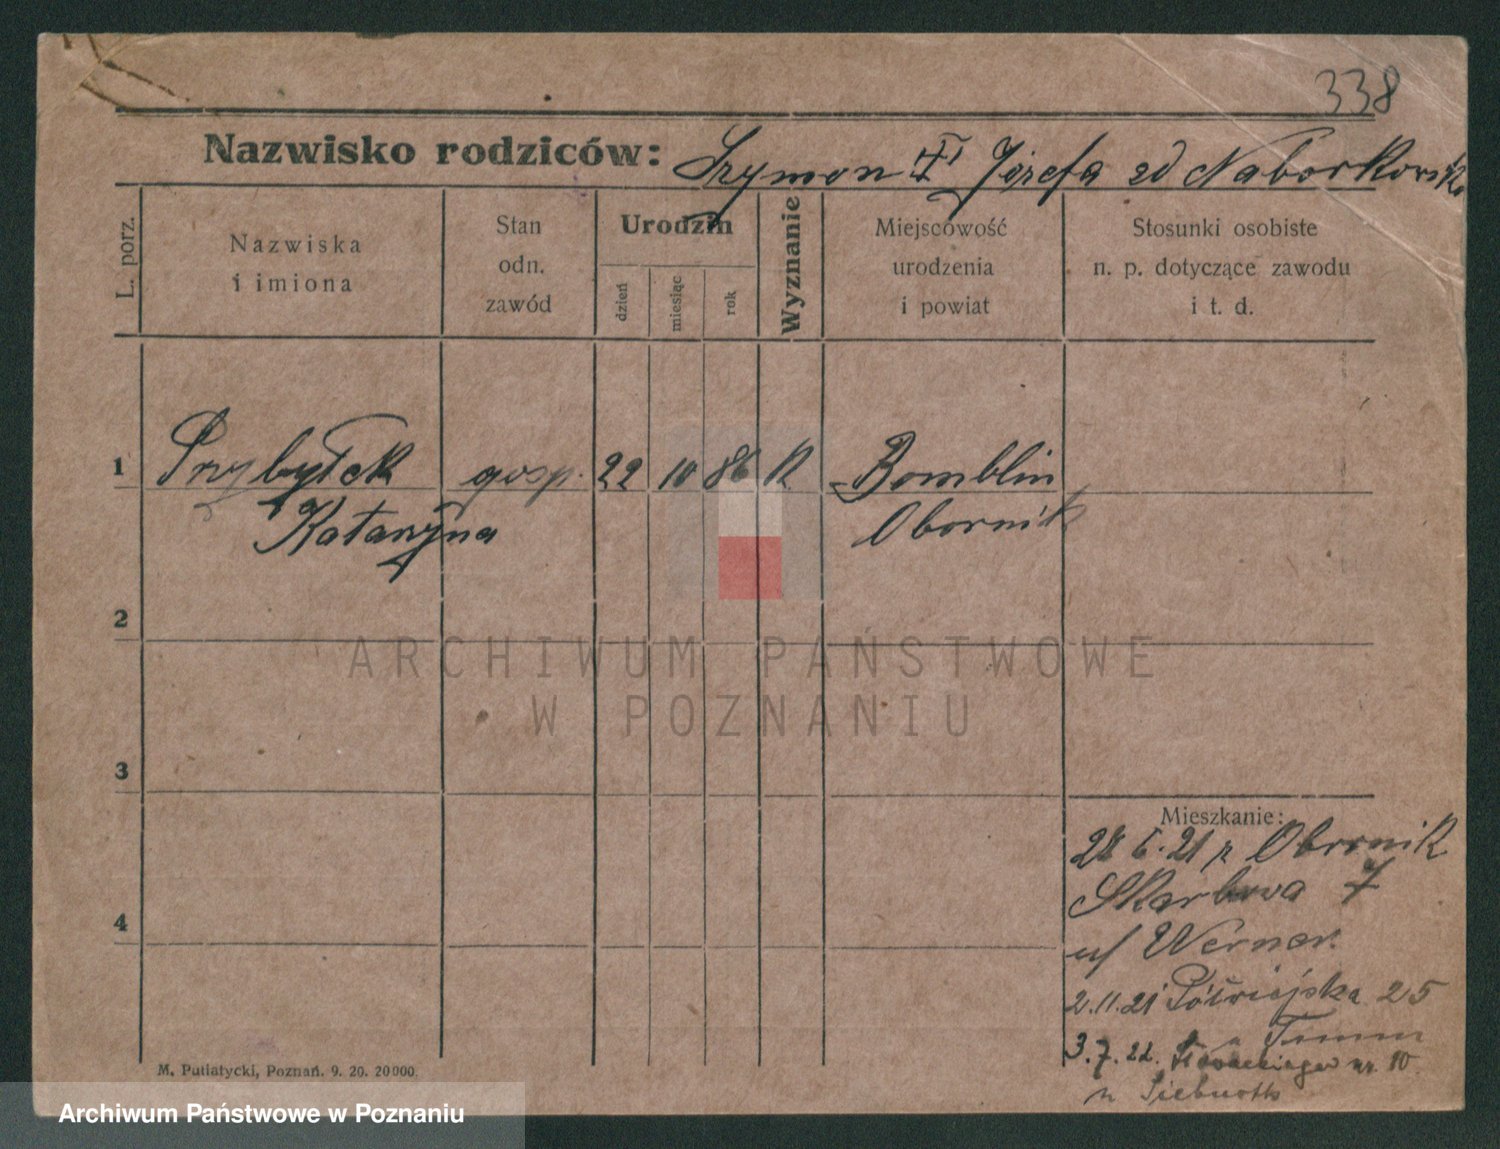 338
Nazwisko rodziców: Szymon i Józefa zd Naborkowska
L. porz.
Nazwiska
i imiona
Stan
odn.
zawód
Urodzin
dzień
miesiąc
rok
Wyznanie
Miejscowość
urodzenia
i powiat
Stosunki osobiste
n. p. dotyczące zawodu
i t. d.
1 Przybyłek gosp. 22 10 86 R. Bomblin
Katarzyna Obornik
2
3
4
ARCHIWUM PAŃSTWOWE
W POZNANIU
Mieszkanie:
21 z Obornik
Skarbowa 7
u/ Werner.
2.11.21 Półwiejska 25
3.7.22. nr. 10
M. Putiatycki, Poznań. 9. 20. 20000.
Archiwum Państwowe w Poznaniu